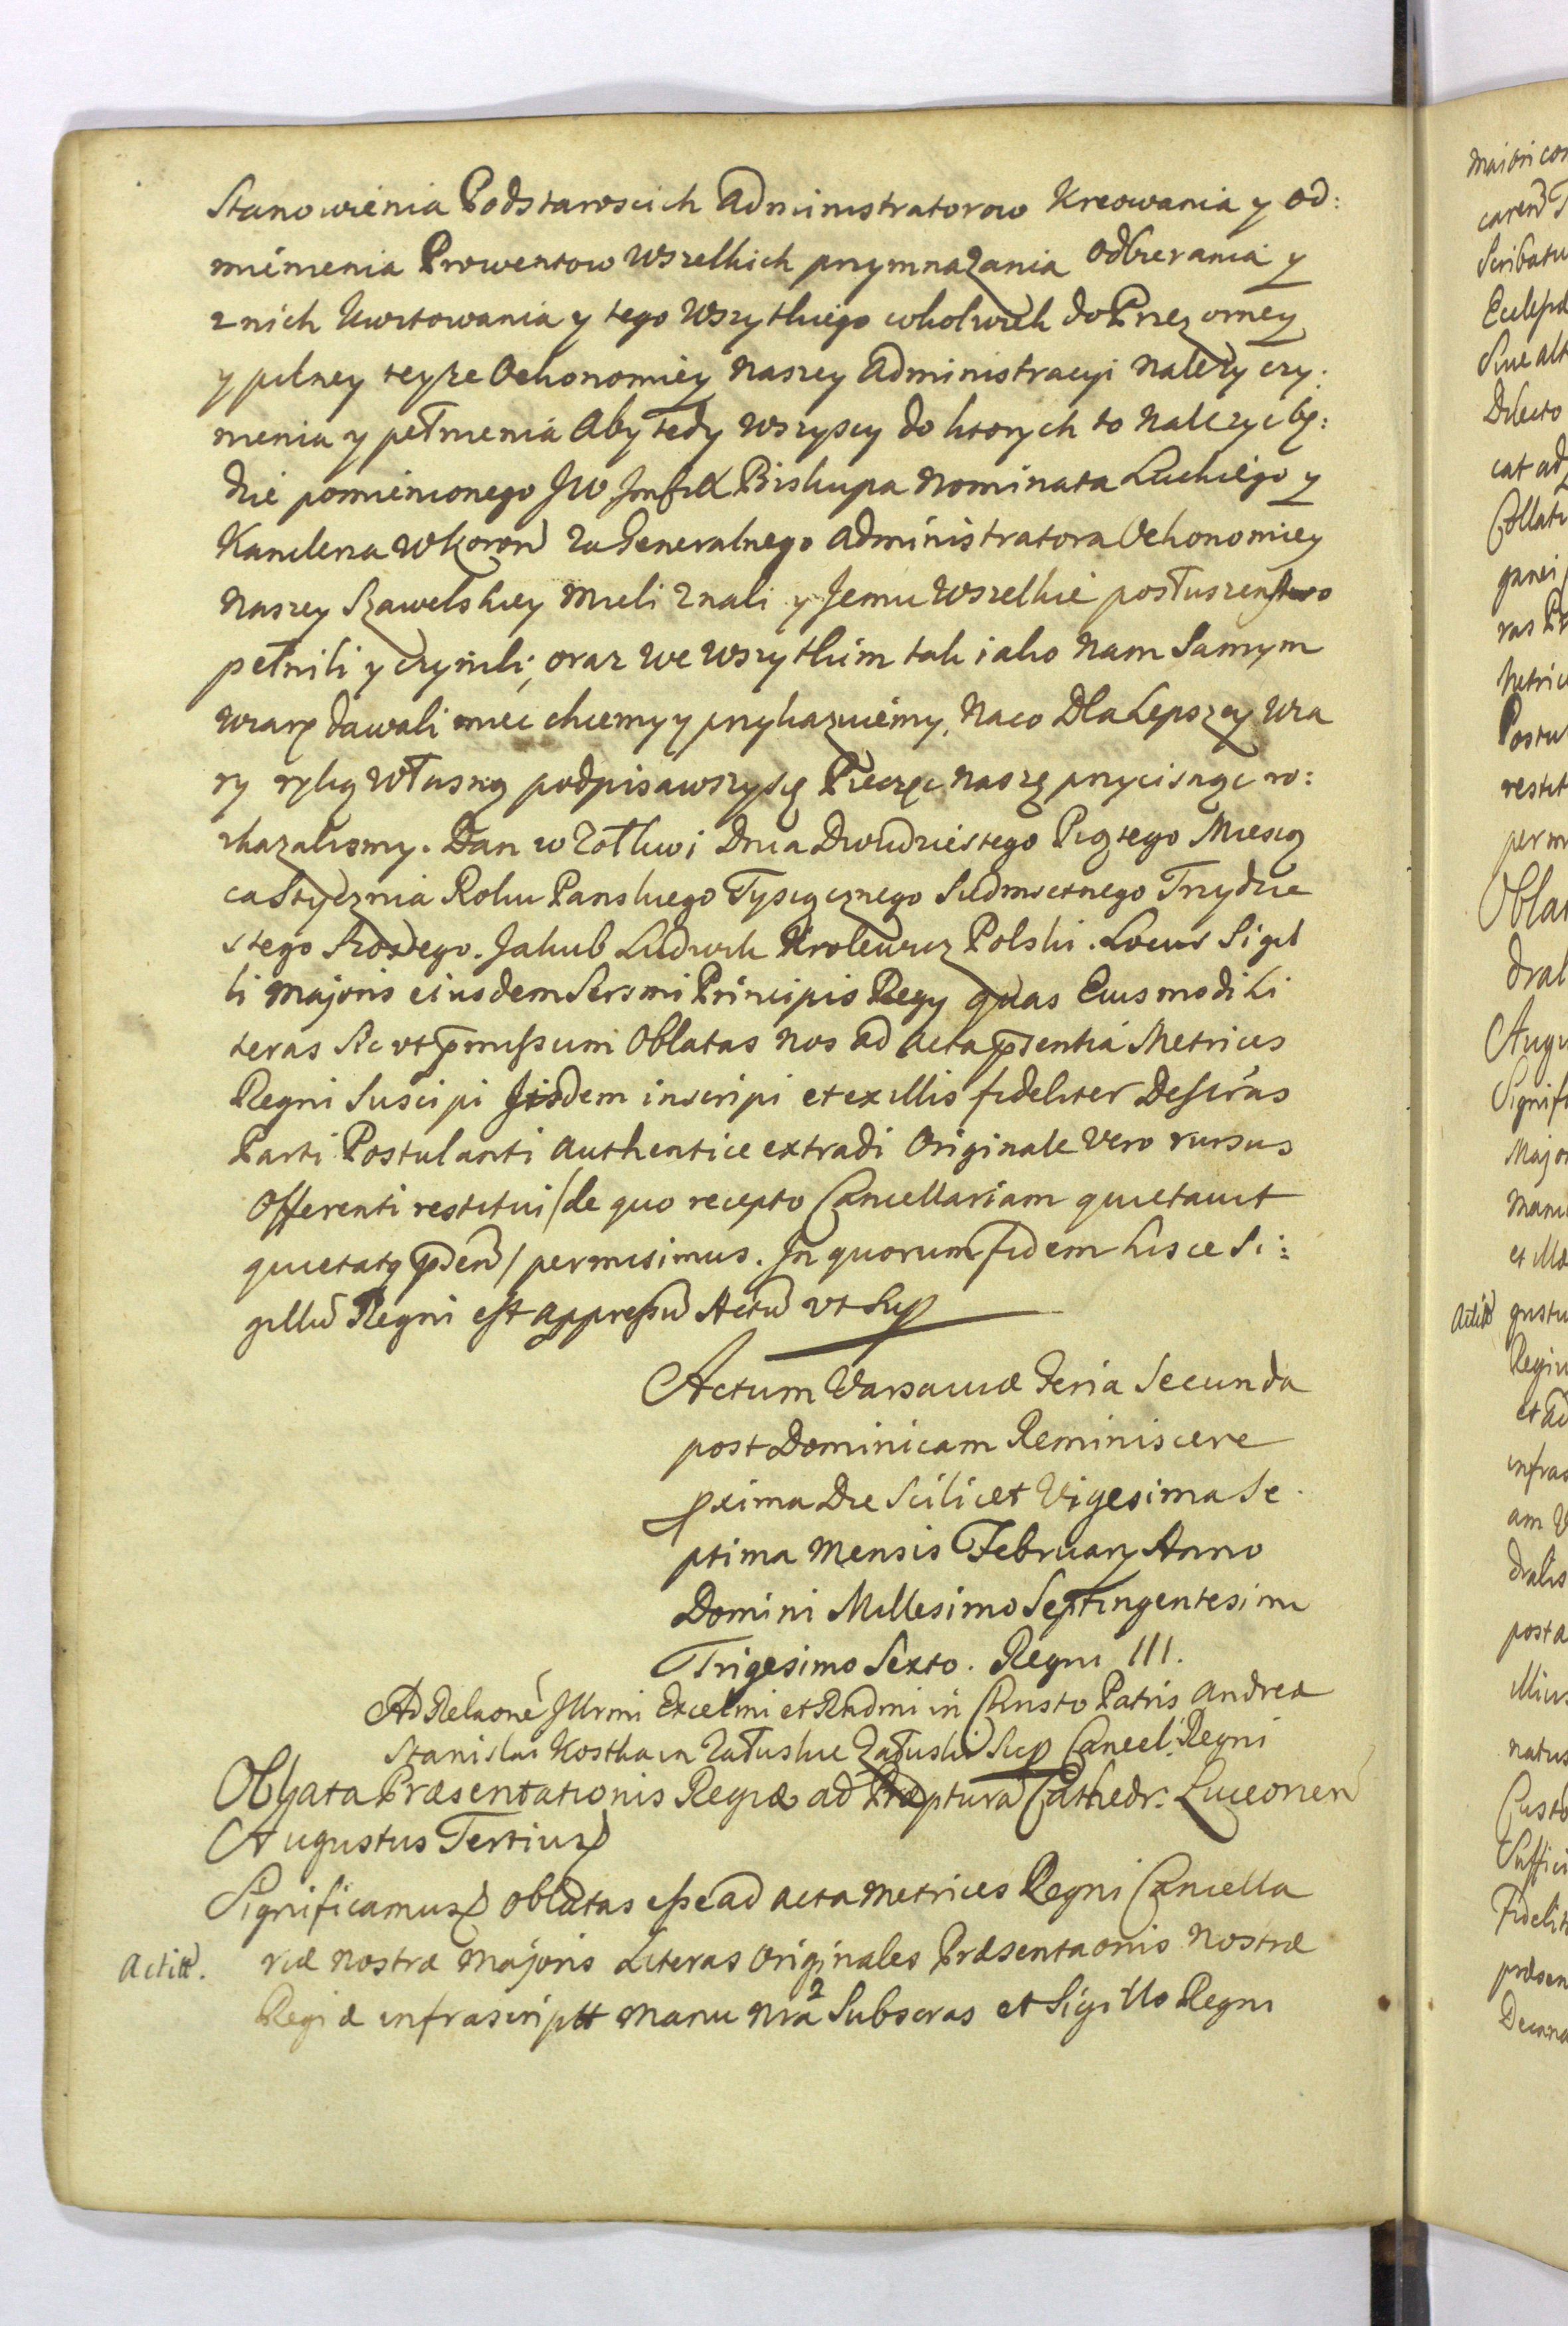 Stanowienia Podstarosćich Administratorow Kreowania y od:
mięnienia Prowentow Wszelkich przymnażania Odbierania y
z nich kwitowania y tego Wszytkiego cokolwiek do Przezorney
y pilney teyże Oekonomiey Naszey Administracyi Należy czy:
nienia y pełnienia Aby tedy Wszyscy do ktorych to Należyć bę:
dzie pomienionego JW Biskupa Nominata Luckiego y
Kanclerza W Koron Za Generalnego Administratora Oekonomiey
Naszey Szawelskiey Mieli Znali y Jemu Wszelkie posłuszenstwo
pełnili y czynili, oraz We Wszytkim tak iako Nam Samym
Wiarę dawali miec chcemy y przykazuiemy, Naco Dla Lepszey Wia
ry ręką Własną podpisawszy się Pieczęc Naszę przycisnąc ro:
zkazalismy. Dan w Zołkwi Dnia Dwudziestego Piątego Miesią
ca Stycznia Roku Panskiego Tysiącznego Siedmsetnego Trzydzie
stego Szostego. Jakub Ludwik Krolewicz Polski. Locus Sigil
li Majoris eiusdem Sersmi Principis Regy quas Eiusmodi Li
teras Sic vt pmissum Oblatas Nos ad Acta psentia Metrices
Regni Suscipi Iisdem inscripi et ex illis fideliter Descras
Parti Postulanti Authentice extradi Originale Vero rursus
Offerenti restitui /de quo recepto Cancellariam quietavit
quietatq psen/ permisimus. In quorum fidem hisce Si:
gillu Regni est appressu Actu vt Sup
Actum Varsaviæ Feria Secunda
post Dominicam Reminiscere
pxima Die Scilicet Vigesima Se
ptima Mensis February Anno
Domini Millesimo Septingentesimo
Trigesimo Sexto. Regni III.
Ad Relaone Illrmi Excelmi et Rndmi in Christo Patris Andreæ
Stanislai Kostka in Załuskie Załuski Sup Cancel. Regni
Oblata Præsentationis Regiæ ad Præpturã Cathedr: Luceorien
Augustus Tertius
Significamus Oblatas esse ad acta Metrices Regni Cancella
Actitt. riæ Nostræ Majoris Literas Originales Præsentaonis Nostræ
Regiæ infrascriptt Manu Nra Subscras et Sigillo Regni